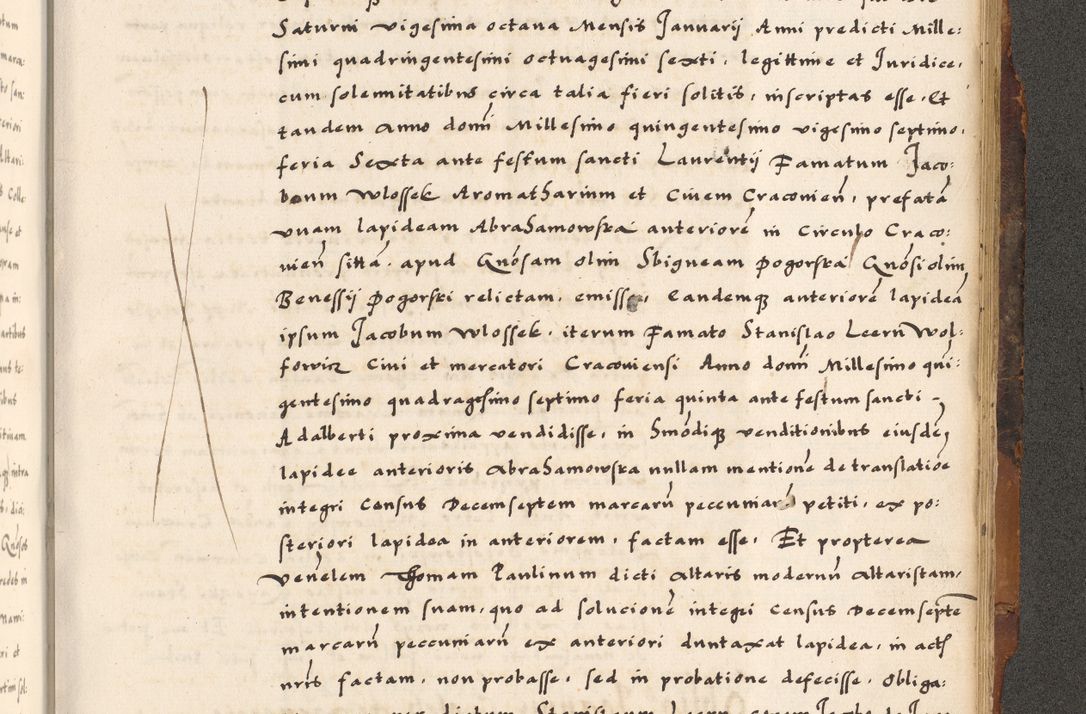 Saturni vigesima octava Mensis Januarij Anni predicti Mille:
simi quadringentesimi octuagesimi sexti, legittime et Juridice,
cum solennitatibus circa talia fieri solitis, inscriptas esse, Et
tandem Anno domi Millesimo quingentesimo vigesimo septimo,
feria Sexta ante festum sancti Laurentij Famatum Jaco:
bum Wlossek Aromatharium et Civem Cracovien, prefatā
vnam lapideam Abrahamowska anteriorē in Circulo Craco:
vien sittā, apud Gnōsam olim Sbigneam Pogorska Gnōsi olim
Benessij Pogorski relictam, emisse, Eandemq anteriorē lapideā
ipsum Jacobum Wlossek, iterum Famato Stanislao Leern Wol:
fowicz Civi et mercatori Cracoviensi Anno domi Millesimo qui:
gentesimo quadragesimo septimo feria quinta ante festum sancti -
Adalberti proxima vendidisse, in Smōdiq venditionibus eiusdē
lapidee anterioris Abrahamowska nullam mentionē de translatiōe
integri Census Decemseptem marcarū peccuniarū petiti, ex po:
steriori lapidea in anteriorem, factam esse, Et propterea
Venēlem Thomam Paulinum dicti Altaris modernū Altaristam,
intentionem suam, quo ad solucionē integri Census Decemseptē
marcarū peccuniarū ex anteriori duntaxat lapidea, in actis
nris factam, non probasse, sed in probatione defecisse, Obliga:
dictum Stanislaum Leern